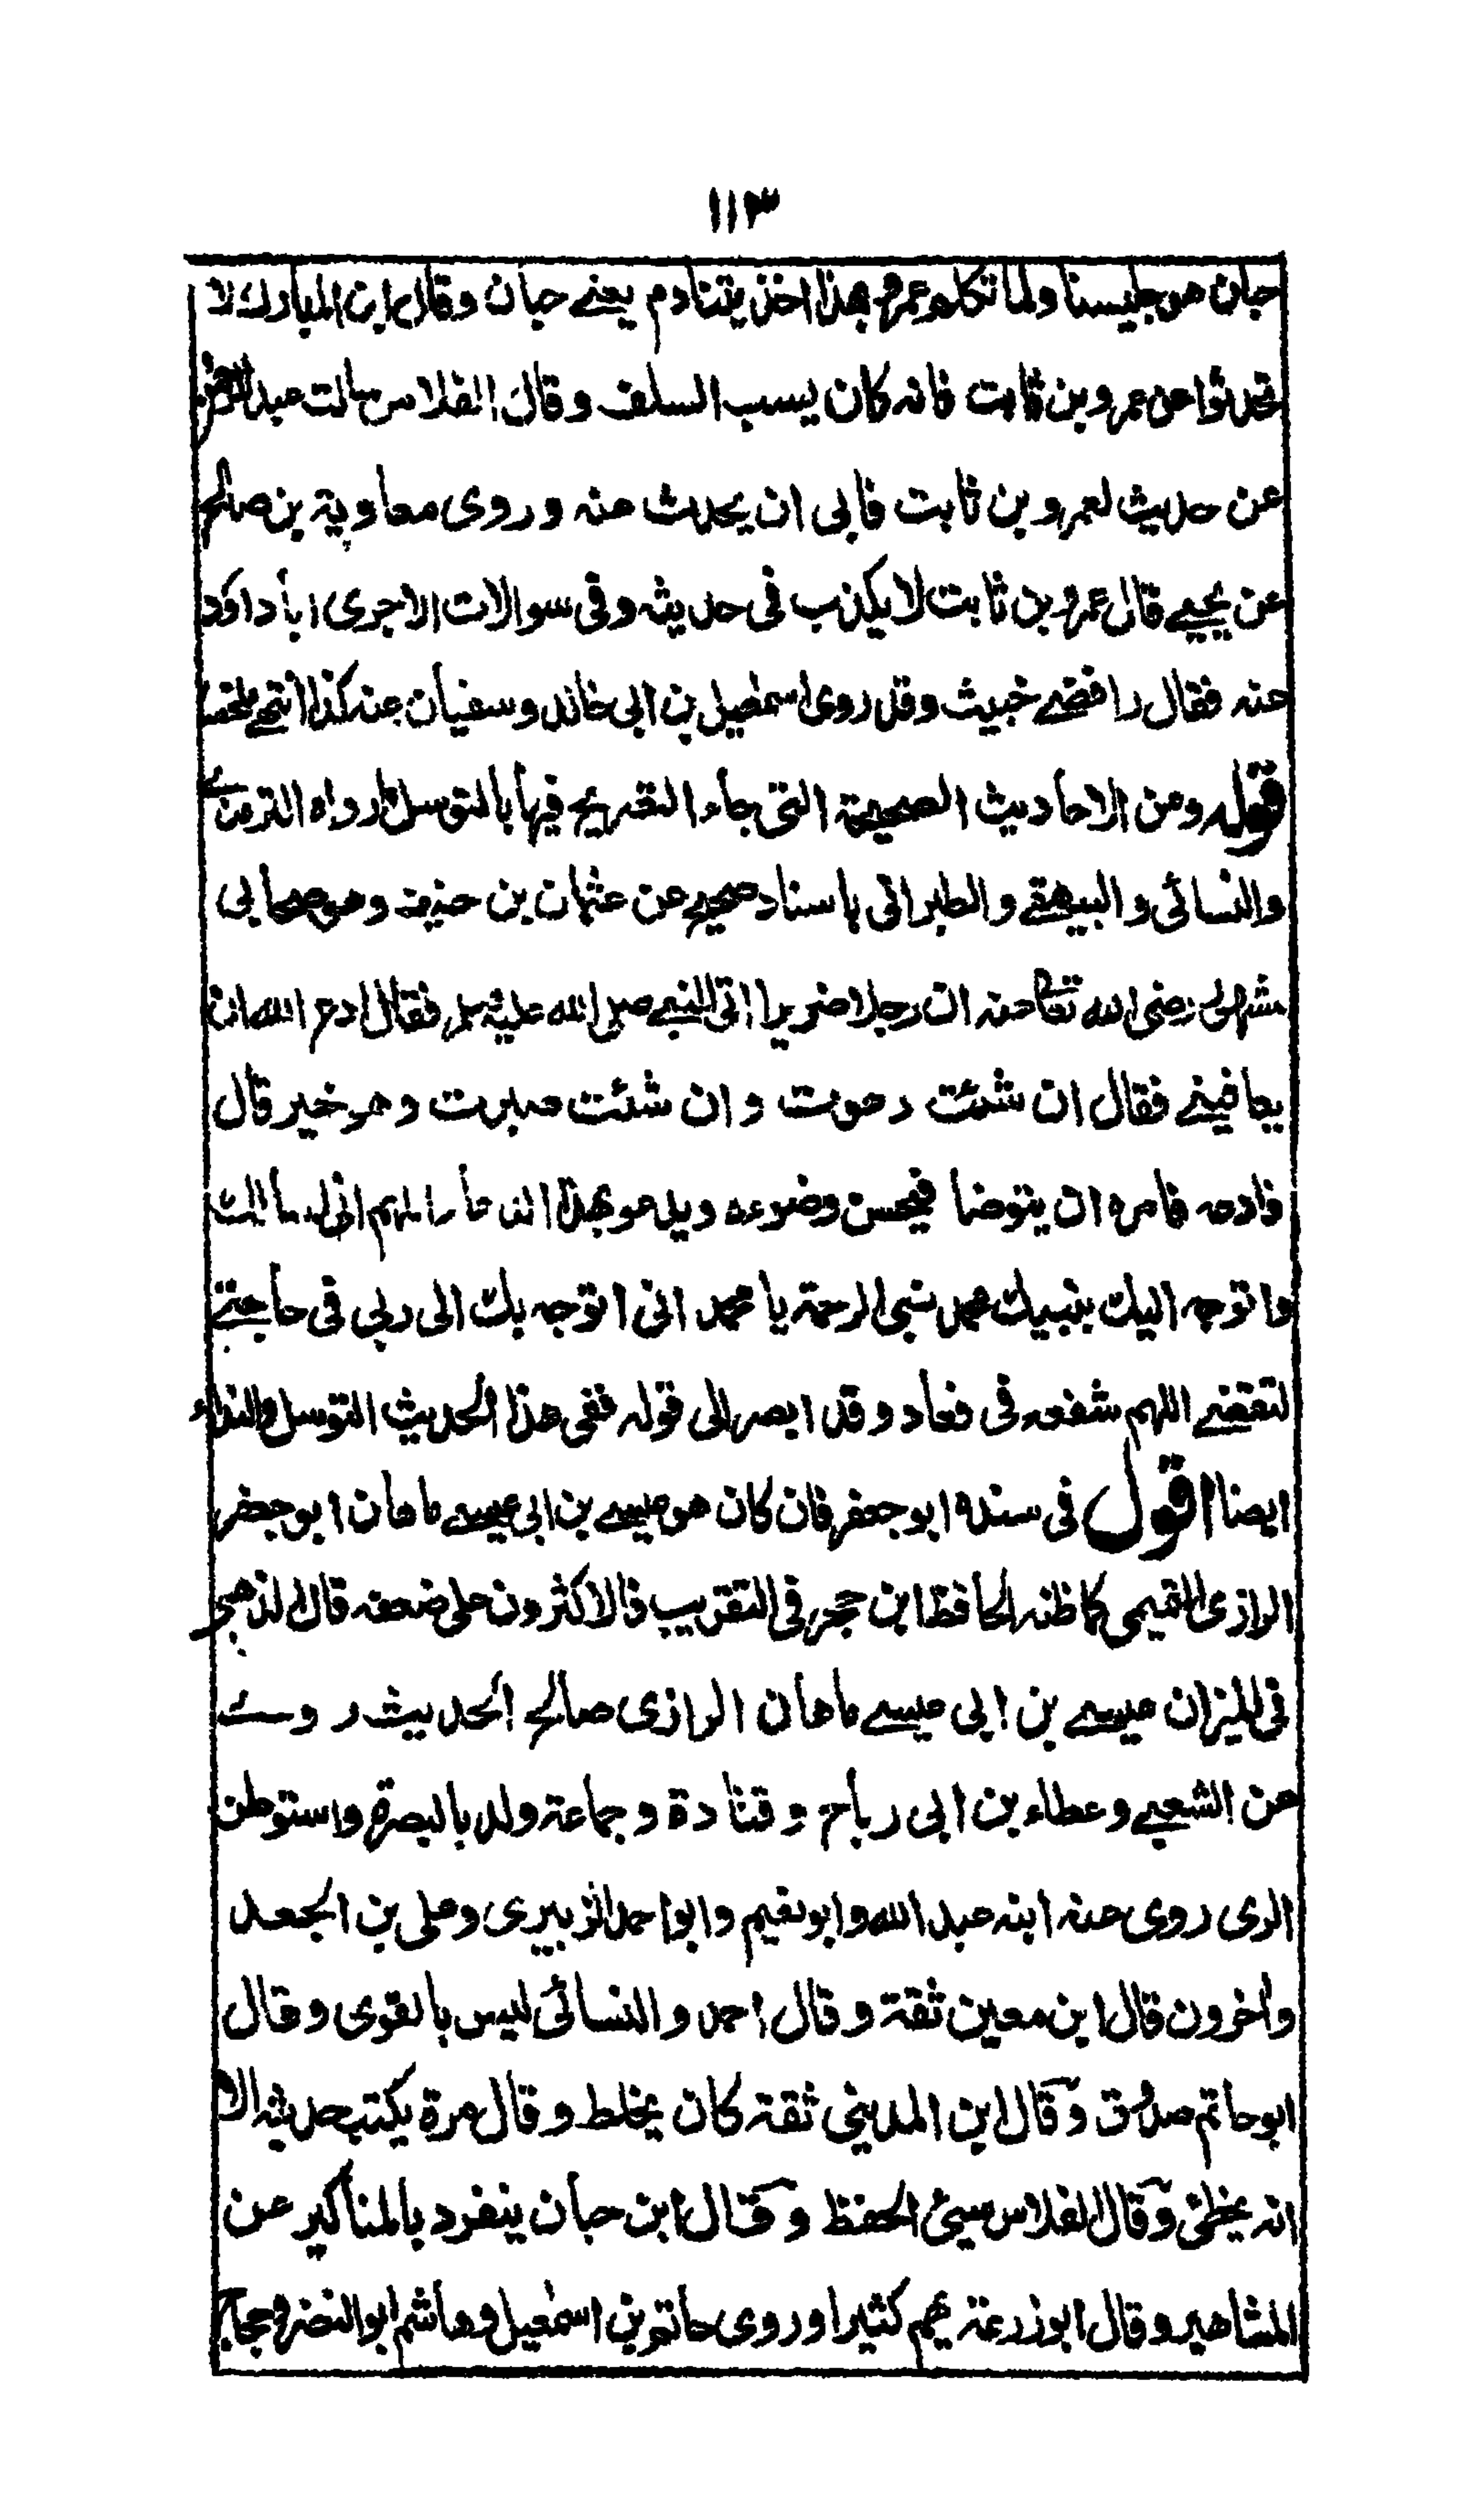 ١١٣
حبان هو جليسنا ولما تكلم عمرو بهذا اخذ يتنادم يعنے حبان وقال ابن المبارك لا
تحدثوا عن عمرو بن ثابت فانه كان يسب السلف وقال الفلاس سالت عبدالرحمن
عن حديث لعمرو بن ثابت فابى ان يحدث عنه وروى معاوية بن صالح
عن يحيے قال عمرو بن ثابت لا يكذب فى حديثه وفى سوالات الاجرى ابا داؤد
عنه فقال رافضے خبيث وقد روى اسمٰعيل بن ابى خالد وسفيان عنه كذا انتهے ملخصا
قوله ومن الاحاديث الصحيحة التى جاء التصريح فيها بالتوسل ما رواه الترمذے
والنسائى والبيهقے والطبرانى باسناد صحيح عن عثمان بن حنيف وهو صحابى
مشهور رضى الله تعا عنه ان رجلا ضريرا اتى النبے صلى الله عليه وسلم فقال ادع الله ان
يعافينے فقال ان شئت دعوت وان شئت صبرت وهو خير قال
فادعه فامره ان يتوضا فيحسن وضوءه ويدعو بهذا الدعاء اللهم انى اسالك
واتوجه اليك بنبيك محمد نبى الرحمة يا محمد انى اتوجه بك الى ربى فى حاجتے
لتقضے اللهم شفعه فى فعاد وقد ابصر الى قوله ففى هذا الحديث التوسل والنداء
ايضا اقول فى سنده ابو جعفر فان كان هو عيسے بن ابى عيسے ماهان ابو جعفر
الرازى التميمى كما ظنه الحافظ ابن حجر فى التقريب فالاكثرون على ضعفه قال الذهبى
فى الميزان عيسے بن ابى عيسے ماهان الرازى صالح الحديث روے
عن الشعبے وعطاء بن ابى رباح وقتادة وجماعة ولد بالبصرة واستوطن
الرى روى عنه ابنه عبد الله وابو نعيم وابو احمد الزبيرى وعلى بن الجعد
واٰخرون قال ابن معين ثقة وقال احمد والنسائى ليس بالقوى وقال
ابو حاتم صدوق وقال ابن المدينى ثقة كان يخلط وقال مرة يكتب حديثه الا
انه يخطئ وقال الفلاس سيئ الحفظ وقال ابن حبان ينفرد بالمناكير عن
المشاهير وقال ابو زرعة يهم كثيرا وروى حاتم بن اسمٰعيل وهاشم ابو النضر وحجاج